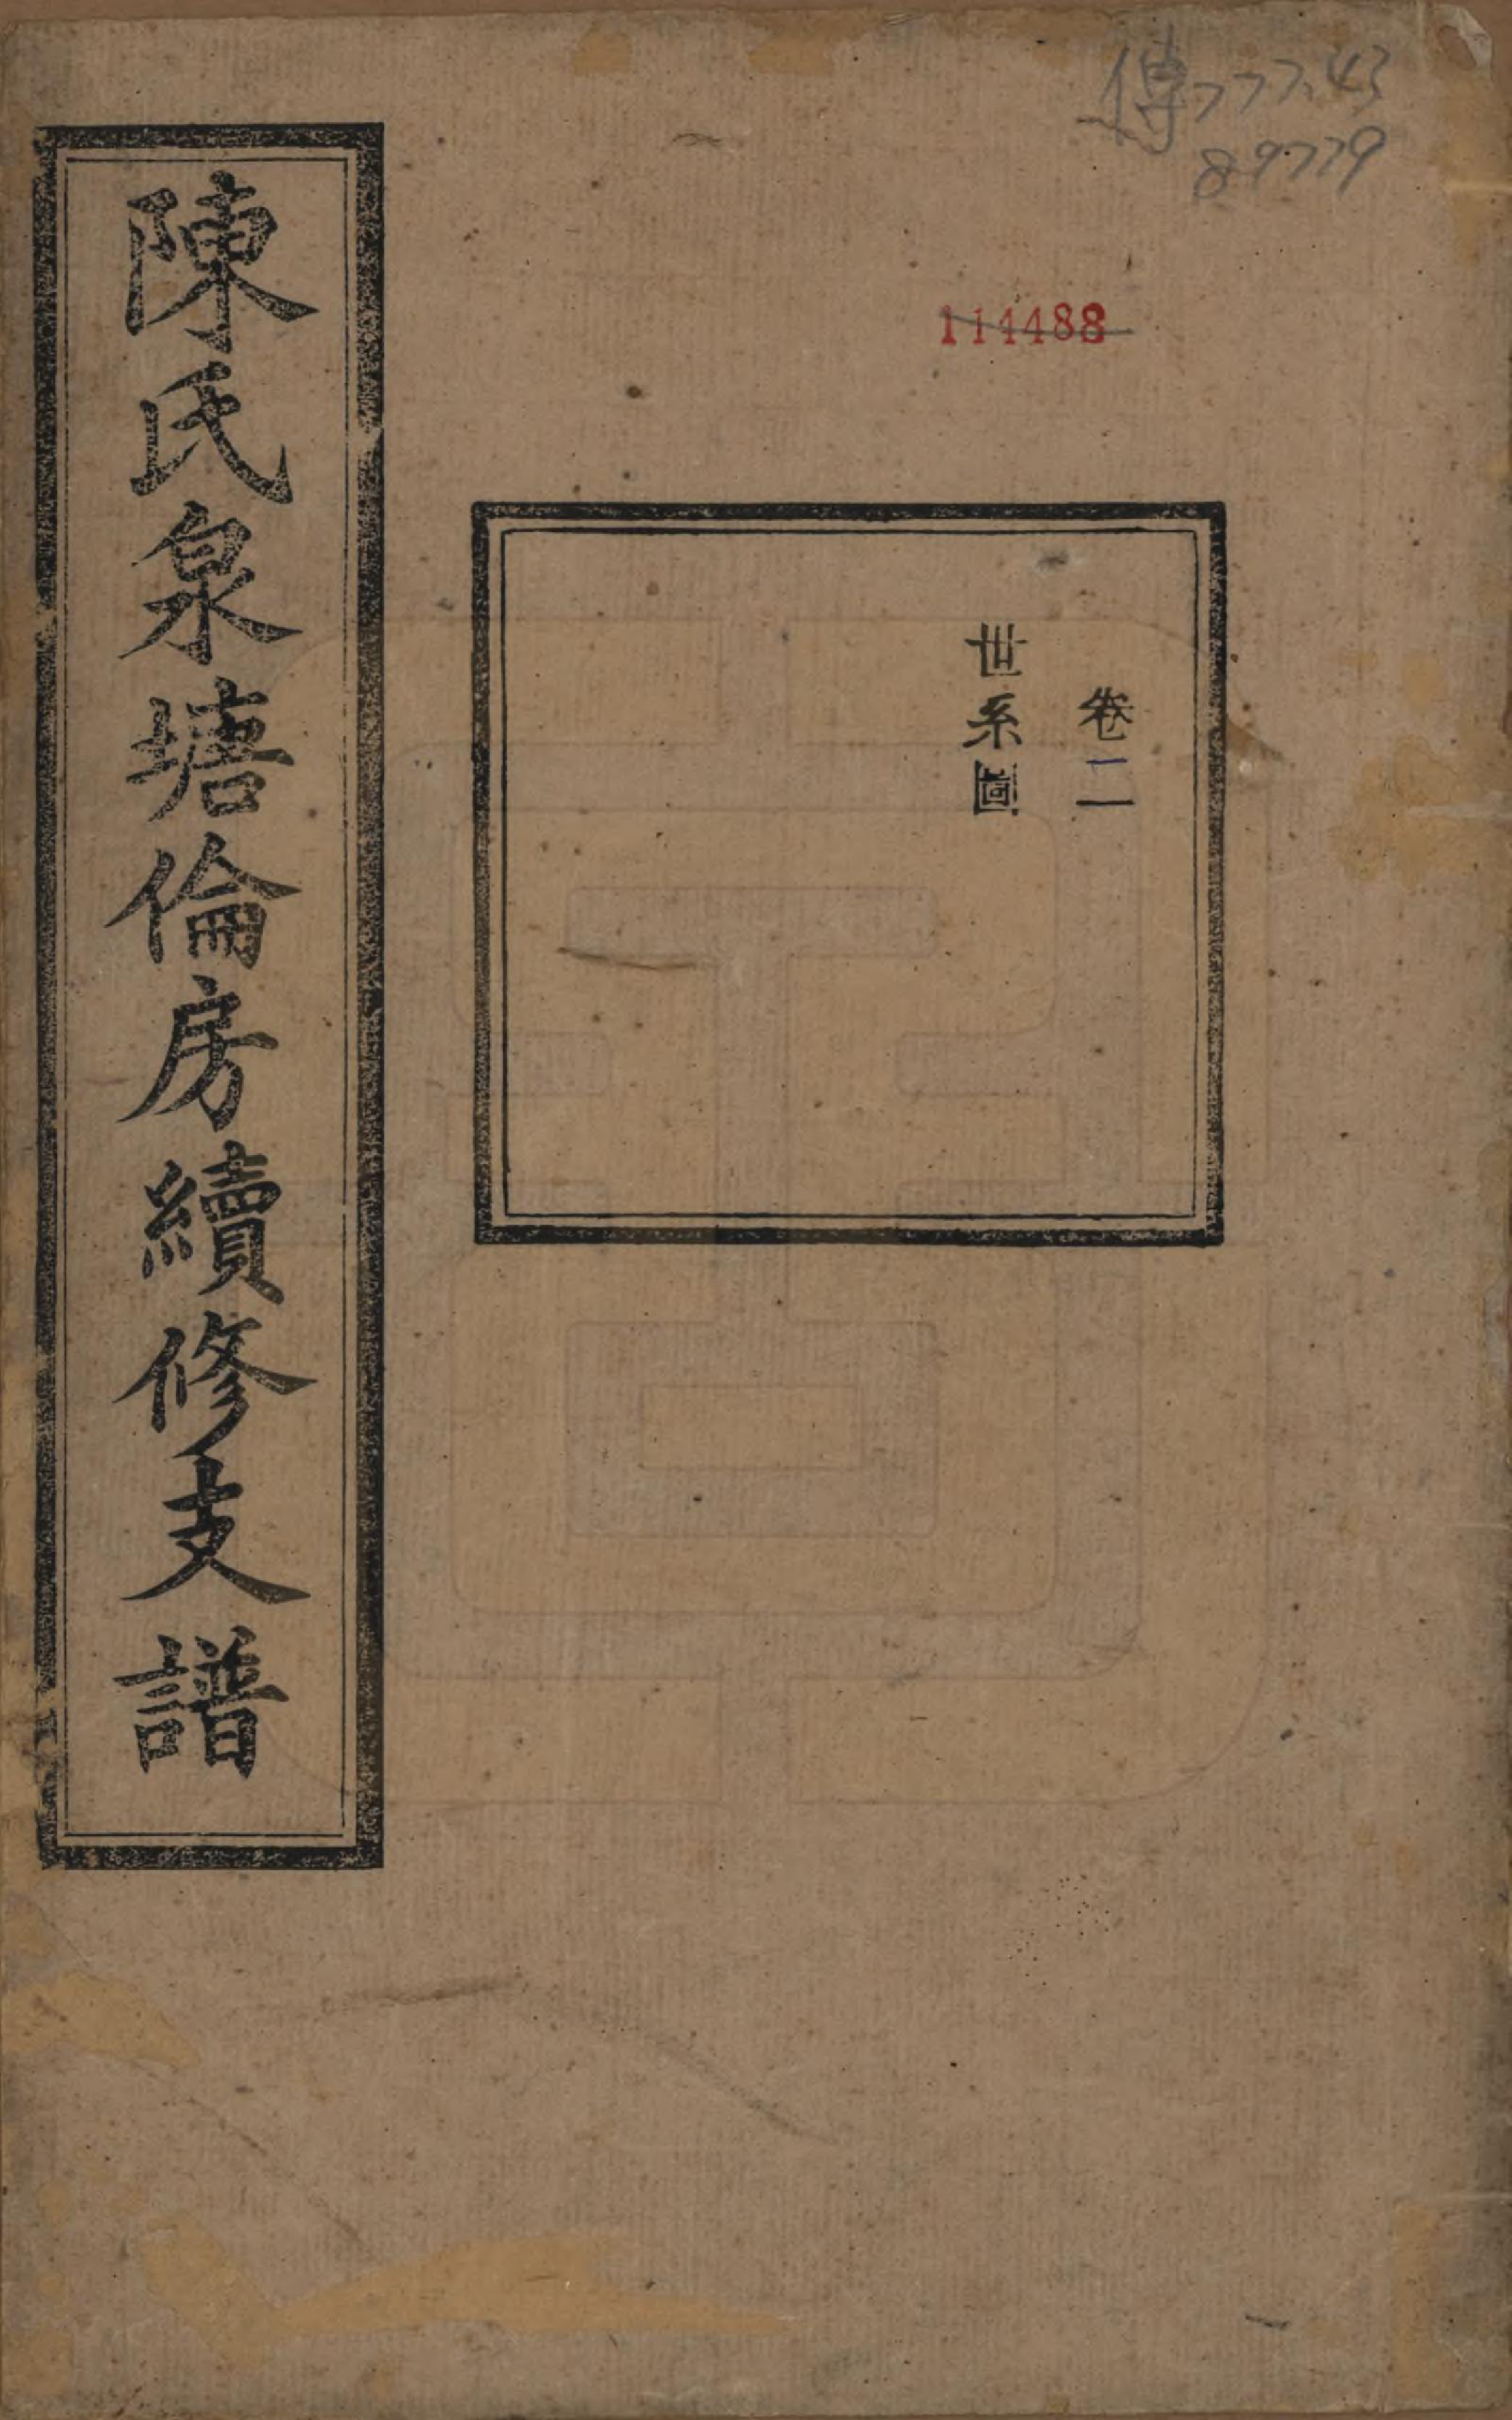 傳777.43
89779
114488
卷二
世系圖
陳氏泉塘倫房續修支譜